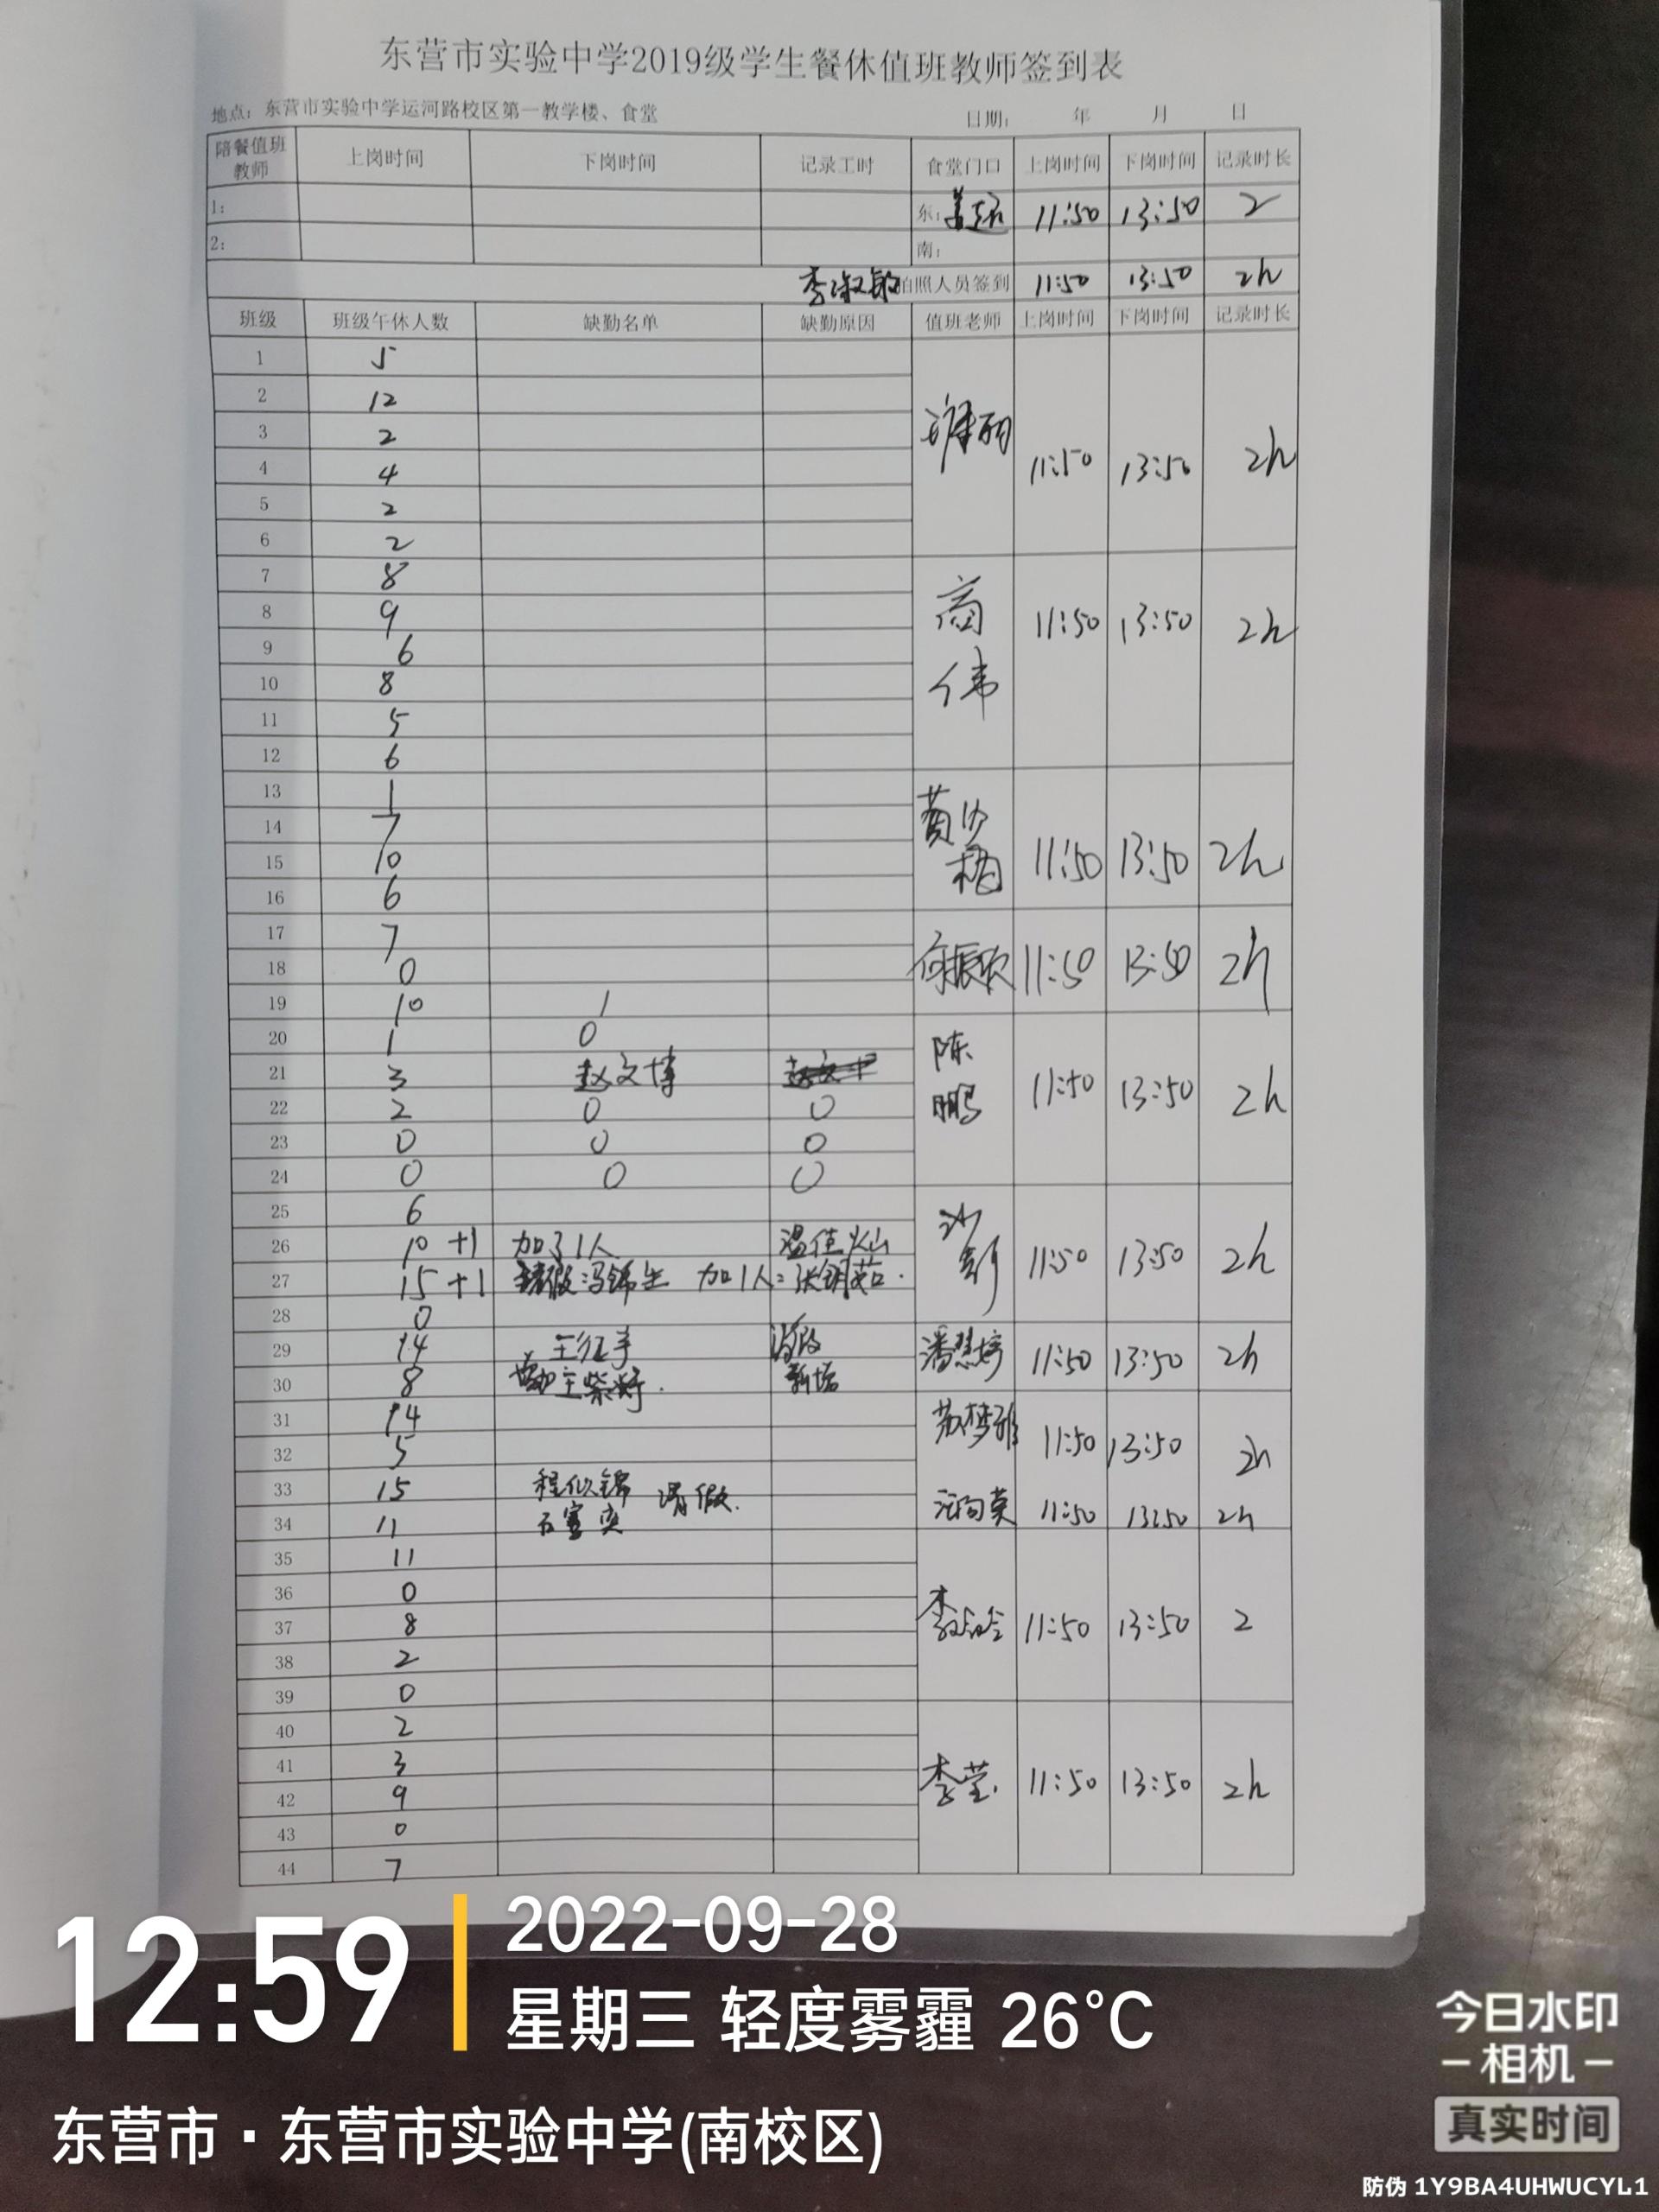 东营市实验中学2019级学生餐休值班教师签到表
地点：东营市实验中学运河路校区第一教学楼、食堂 日期： 年 月 日
陪餐值班教师 上岗时间 下岗时间 记录工时 食堂门口 上岗时间 下岗时间 记录时长
1： 东： 11:50 13:50 2
2： 南：
李淑敏 拍照人员签到 11:50 13:50 2h
班级 班级午休人数 缺勤名单 缺勤原因 值班老师 上岗时间 下岗时间 记录时长
1 5
2 12
3 2
4 4 11:50 13:50 2h
5 2
6 2
7 8
8 9 高伟 11:50 13:50 2h
9 6
10 8
11 5
12 6
13 1
14 7
15 10 11:50 13:50 2h
16 6
17 7
18 0 11:50 13:50 2h
19 10 1
20 1 0
21 3 赵文博 陈鹏 11:50 13:50 2h
22 2 0 0
23 0 0 0
24 0 0 0
25 6
26 10 +1 加了1人 11:50 13:50 2h
27 15 +1 请假:冯锦生 加1人:
28 0
29 14 请假 潘慧婷 11:50 13:50 2h
30 8 新增
31 14 苏梦雅 11:50 13:50 2h
32 5
33 15 程似锦 请假.
34 11 汪向荣 11:50 13:50 2h
35 11
36 0
37 8 11:50 13:50 2
38 2
39 0
40 2
41 3 李莹. 11:50 13:50 2h
42 9
43 0
44 7
12:59
2022-09-28
星期三 轻度雾霾 26°C
东营市·东营市实验中学(南校区)
今日水印
相机
真实时间
防伪 1Y9BA4UHWUCYL1